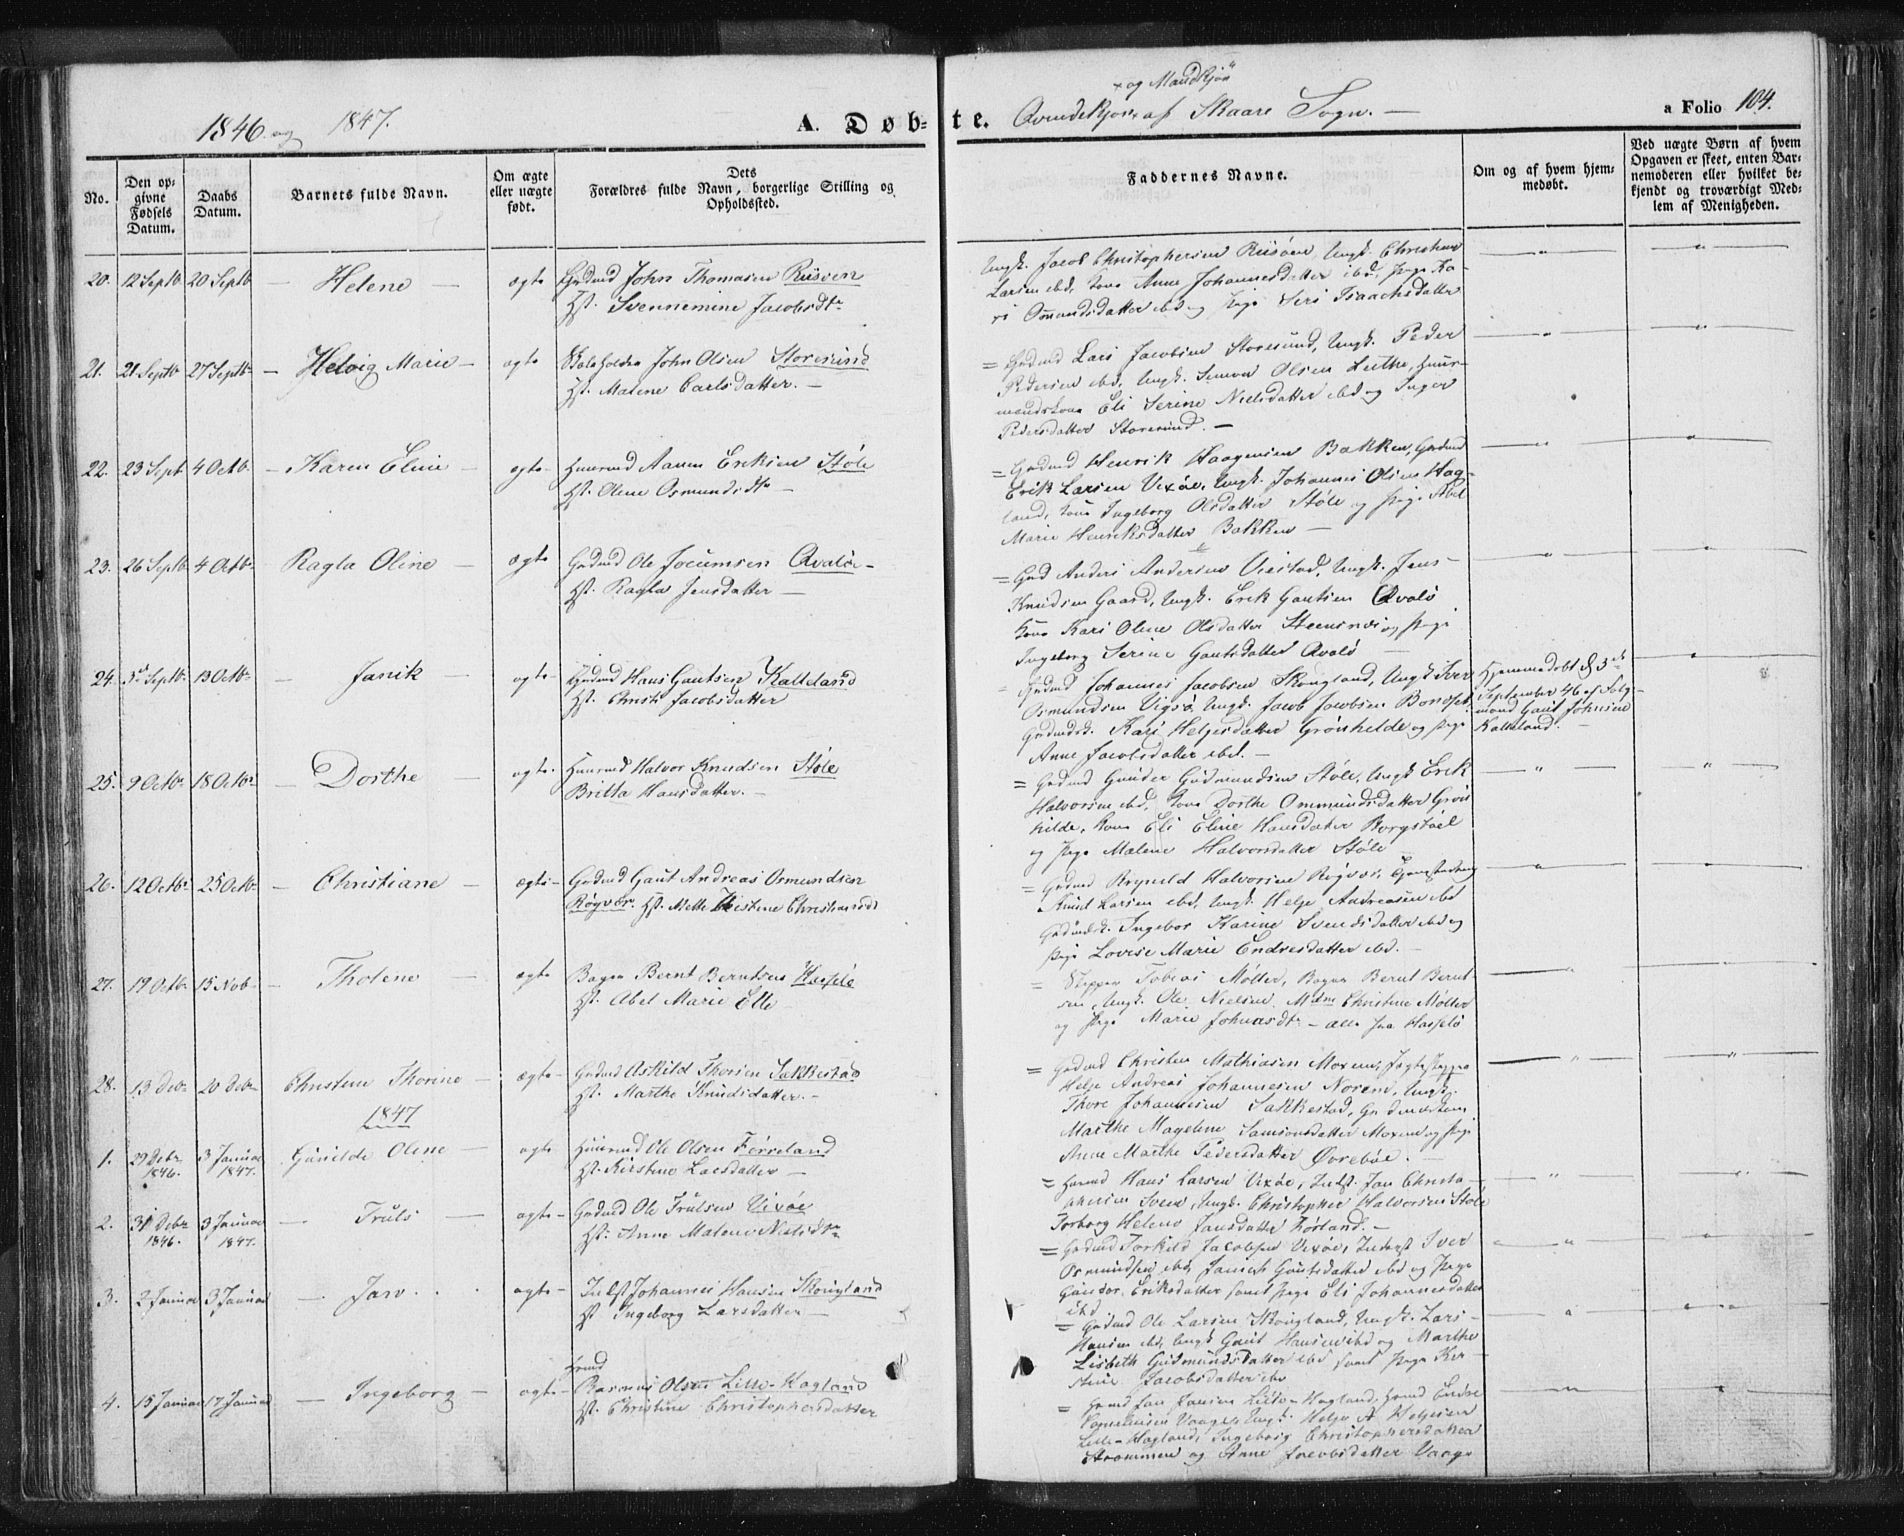 1846 og 1847.
A. Døbte. Qvindekjøn af Skaare Sogn. —
× og Mandkjøn
a Folio 104.
No.
Den opgivne Fødsels Datum.
Daabs Datum.
Barnets fulde Navn.
Om ægte eller uægte født.
Forældres fulde Navn, Dets borgerlige Stilling og Opholdssted.
Faddernes Navne.
Om og af hvem hjemmedøbt.
Ved uægte Børn af hvem Opgaven er skeet, enten Barnemoderen eller hvilket bekjendt og troværdigt Medlem af Menigheden.
20. 12 Septb 20 Septb — Helene — ægte
Grdmd John Thomasen Risøen
Hst. Svennemine Jacobsdtr
Ungk. Jacob Christophersen Risøen, Ungk. Christian
Larsen ibd, Kone Anne Johannesdatter ibd, Pige Ka-
ri Omundsdatter ibd og Pige Seri Isaachsdatter
21. 21 Septb 27 Septb — Helvig Marie — ægte
John Olsen Storesund
Hst. Malene Carlsdatter. —
= Grdmd Lars Jacobsen Storesund, Ungk. Peder
Pedersen ibd, Ungk. Olsen Huus-
mandskone Eli Serine Nielsdatter ibd og Inger
Pedersdatter Storesund. —
22. 23 Sept 4 Octb. — Karen Eline — ægte
Huusmd Aamen Eriksen Støle
Hst. Olene Osmundsdtr —
= Grdmd Henrik Haagensen Bakken, Grdmd
Erik Larsen Vixøe, Ungk. Johannes Olsen Hag-
land, Kone Ingeborg Olsdatter Støle og Pige Abel
Marie Henriksdatter Bakken —
23. 26 Septb 4 Octbr. Ragla Oline — ægte
Grdmd Ole Jocumsen Qvaløe —
Hst. Ragla Jensdatter —
= Grd Anders Andersen Viestad, Ungk. Jens
Knudsen Gaard, Ungk. Erik Gautsen Qvalø
Kone Kari Oline Olsdatter Steensnæs og Pige
Ingeborg Serine Gautsdatter Qvalø —
24. 3d Septb. 13 Octbr. — Janik — ægte
Grdmd Hans Gautsen Kalleland
Hst. Jacobsdatter
= Grdmd Johannes Jacobsen Skougland, Ungk Iver
Osmundsen Vigsø, Ungk. Jacob Jacobsen
Kari Helgesdatter Grønhilde og Pige
Anne Jacobsdatter ibd. —
Hjemmedøbt d 3de
September 46 af Folg-
mand Gaut Johnsen
Kalleland.
25. 9 Octbr. 18 Octbr. — Dorthe — ægte.
Huusmd Halvor Knudsen Støle
Britta Hansdatter. —
= Grdmd Gunder Gudmundsen Støle, Ungk Erik
Halvorsen ibd, Kone Dorthe Ommundsdatter Grøn
hilde, Kone Eli Eline Hansdatter Borgstøel
og Pige Malene Halvorsdatter Støle
26. 12 Octbr. 25 Octbr. — Christiane — ægte
Grdmd Gaut Andreas Osmundsen
Røgvær. Hst. Mette Kistine Christiansdt
= Grdmd Brynild Halvorsen Røgvær,
Knud Larsen ibd, Ungk. Helge Andreasen ibd
Ingebor Karine Svendsdatter ibd og
Pige Lovise Marie Endresdatter ibd. —
27. 19 Octbr. 15 Novb. — Tholene — ægte
Bager Bernt Berntsen Hasselø
Hst. Abel Marie Elle
= Skipper Tobias Møller, Bager Bernt Bernt
sen, Ungk. Ole Nielsen, Mdm Christine Møller
og Pige Marie Johnasdtr. — alle fra Hasselø
28. 13 Debr 20 Debr Christene Thorine — ægte
Grdmd Askild Thorsen Sakkestad
Hst. Marthe Knudsdatter. —
= Grdmd Christen Mathiasen Moxem, Jagteskipper
Helje Andreas Johannesen Norem, Ungk.
Thore Johannesen Sakkestad,
Marthe Magelene Samsonsdatter Moxem og Pige
Anne Marthe Pedersdatter Øvrebøe.
1847
1. 29 Debr. 1846. 3 Januar 1847. Gunilde Oline — ægte
Huusmd Ole Olsen Førreland
Hst. Kirstine Larsdatter —
= Hans Larsen Vixøe, Indst. Jan Christo-
phersen Ungk. Christopher Halvorsen Støle
Torborg Helene Jansdatter Førland. —
2. 31 Debr 1846. 3 Januar 1847. — Truls — ægte
Grdmd Ole Trulsen Vixøe
Hst. Anne Malene Nielsdtr
= Grdmd Torkild Jacobsen Vixøe, Inderst Iver
Osmundsen ibd, Gautsdatter ibd og Pige
Gundor Eriksdatter samt Pige Eli Johannesdatter
ibd
3. 2 Januar 3 Januar — Jan . . ægte
Indst Johannes Hansen Skougland
Hst. Ingeborg Larsdatter —
= Grdmd Ole Larsen Skougland, Ungk. Lars
Hansen ibd, Ungk Gaut Hansen ibd og Marthe
Lisbeth Gudmundsdatter ibd samt Pige Ker-
stine Jacobsdatter ibd
4. 15 Januar 17 Januar — Ingeborg — ægte
Rasmus Olsen Lille-Hagland
Hst. Christine Christophersdatter
= Jan Jansen Lille-Hagland, Endre
Ungk. Helge A Helgesen
Lille-Hagland, Ingeborg Christophersdatter
Strømmen og Anne Jacobsdatter Vaage